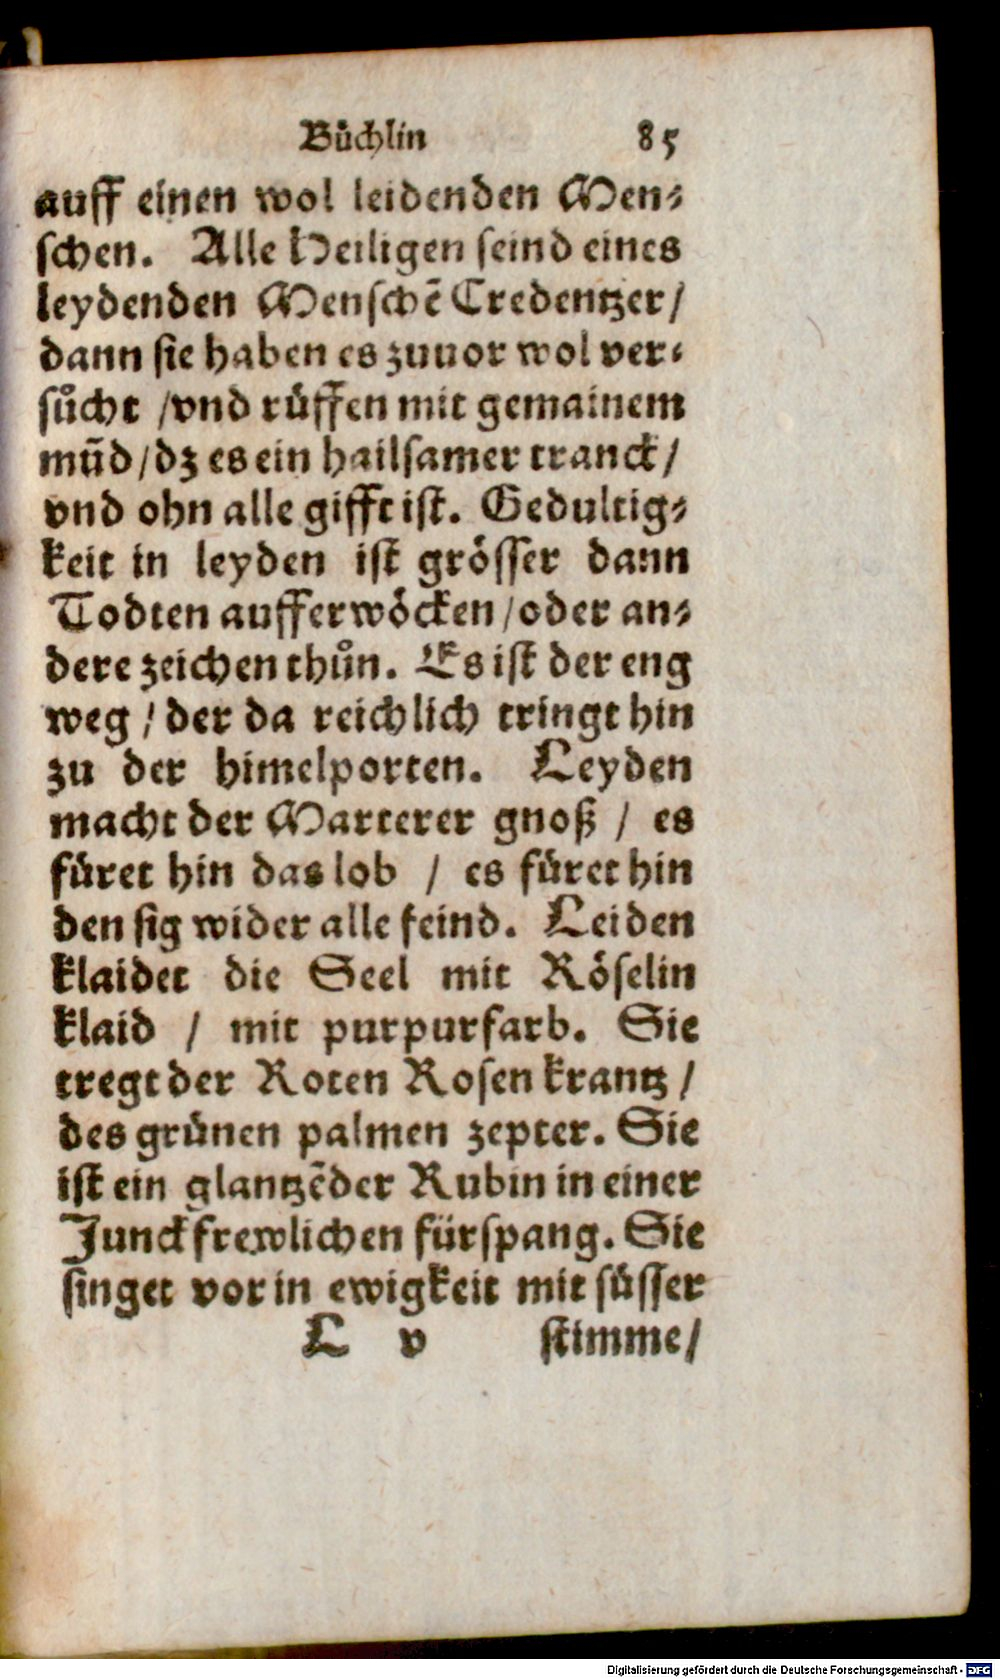 Bůchlin 85
auff einen wol leidenden Men⸗
schen. Alle Heiligen seind eines
leydenden Menschẽ Credentzer/
dann sie haben es zuuor wol ver⸗
sůcht /vnd rüffen mit gemainem
mũd/dz es ein hailsamer tranck/
vnd ohn alle gifft ist. Gedultig⸗
keit in leyden ist grösser dann
Todten aufferwöcken/oder an⸗
dere zeichen thůn. Es ist der eng
weg / der da reichlich tringt hin
zu der himelporten. Leyden
macht der Marterer gnoß / es
füret hin das lob / es füret hin
den sig wider alle feind. Leiden
klaidet die Seel mit Röselin
klaid / mit purpurfarb. Sie
tregt der Roten Rosen krantz /
des grünen palmen zepter. Sie
ist ein glantzẽder Rubin in einer
Junckfrewlichen fürspang. Sie
singet vor in ewigkeit mit süsser
L v stimme/
Digitalisierung gefördert durch die Deutsche Forschungsgemeinschaft - DFG